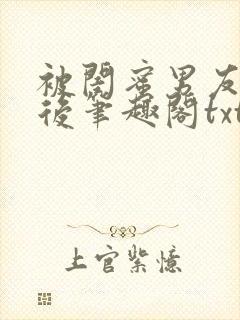 被闺蜜男友
后笔趣阁txt
上官紫憶